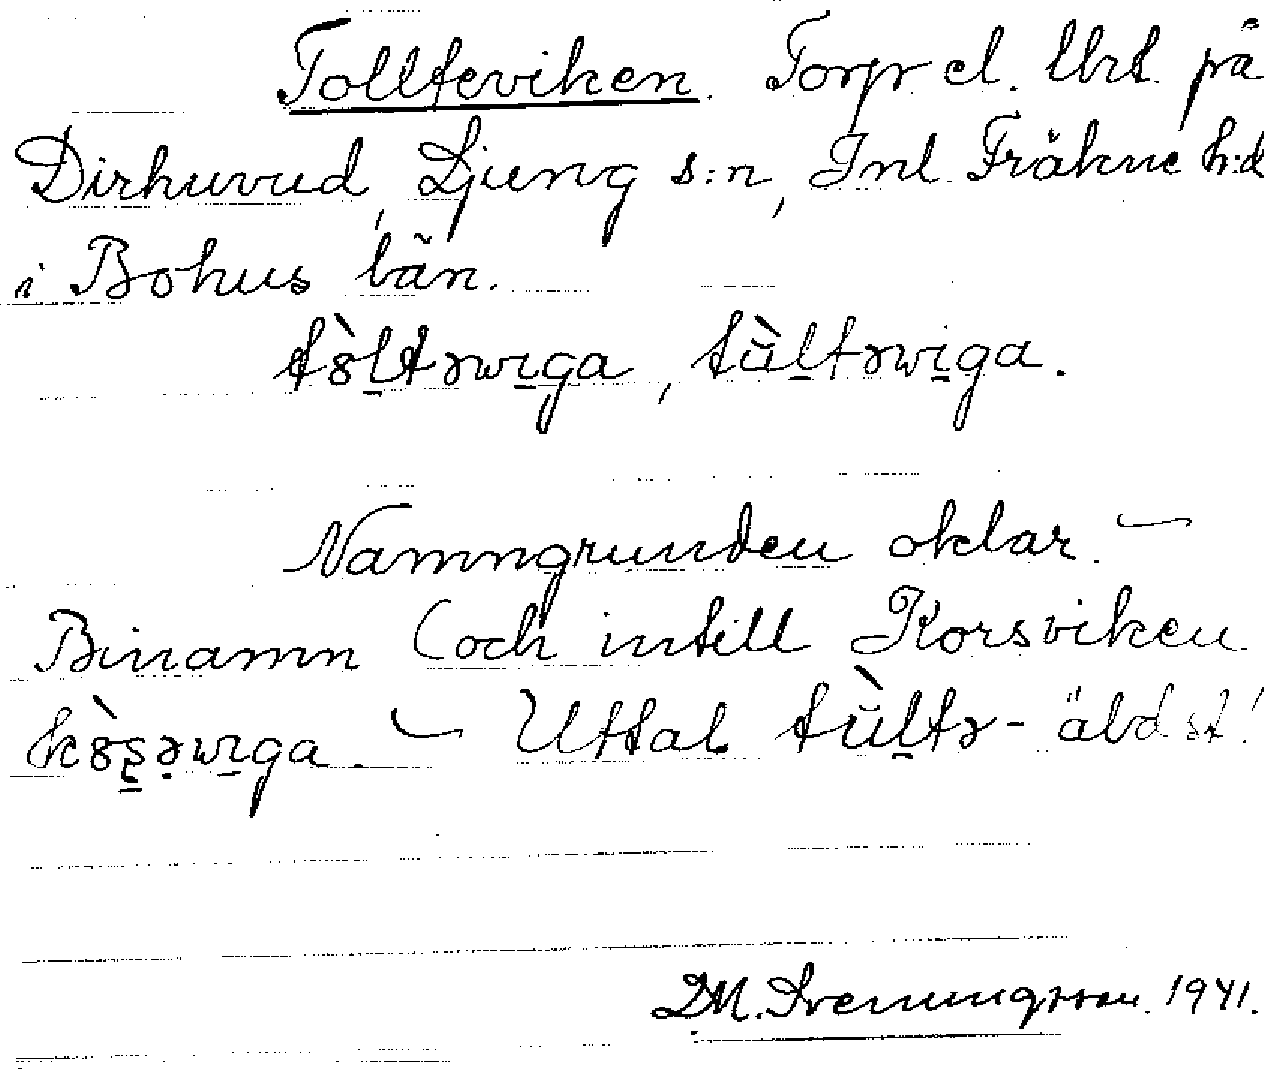 Tollteviken. Torp el. lht. på
Dirhuvud, Ljung s:n, Inl. Fräkne h:d
i Bohus län.
tò̤ltəwiga, tùltəwiga.
Namngrunden oklar. –
Binamn (och intill Korsviken
kò̤sə̣wiga. – Uttal tùltə- äldst!
D.M. Svenungsson. 1941.